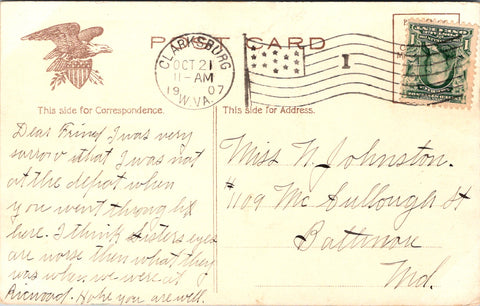 POST CARD
CLARKSBURG
OCT 21
11-AM
1907
W.VA.
1
This side for Correspondence.
This side for Address.
Dear Friend I was very
sorrow that I was not
at the depot when
you went through
here. I think sisters eyes
are worse then what they
was when we were at
Richwood. Hope you are well.
Miss N. Johnston.
#1109 Mc Cullough St
Baltimore
Md.